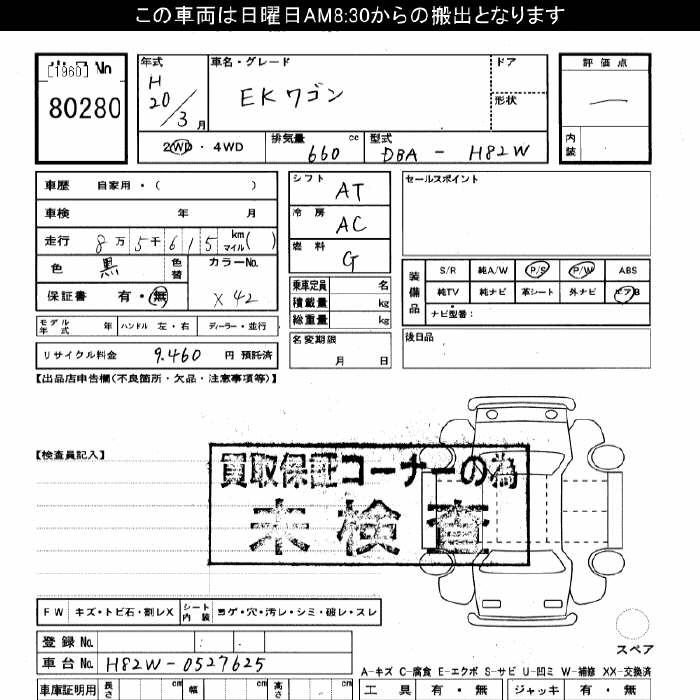 この車両は日曜日AM8:30からの搬出となります
[1960]
80280
年式 H 20/3 月
車名・グレード EKワゴン
ドア
形状
評価点 —
内装
2WD・4WD
排気量 660 cc
型式 DBA - H82W
車歴 自家用・( )
車検 年 月
走行 8万5千615 km マイル( )
色 黒 色替
カラーNo. X42
保証書 有・無
モデル年式 年 ハンドル 左・右 ディーラー・並行
リサイクル料金 9,460 円 預託済
シフト AT
冷房 AC
燃料 G
乗車定員 名
積載量 kg
総重量 kg
名変期限 月 日
セールスポイント
装備品 S/R 純A/W P/S P/W ABS
純TV 純ナビ 革シート 外ナビ エアB
ナビ型番:
後日品
【出品店申告欄(不良箇所・欠品・注意事項等)】
【検査員記入】
買取保証コーナーの為
未検査
FW キズ・トビ石・割レX シート内装 コゲ・穴・汚レ・シミ・破レ・スレ
登録No.
車台No. H82W-0527625
スペア
A-キズ C-腐食 E-エクボ S-サビ U-凹ミ W-補修 XX-交換済
車庫証明用 長さ cm 幅 cm 高さ cm
工具 有・無 ジャッキ 有・無